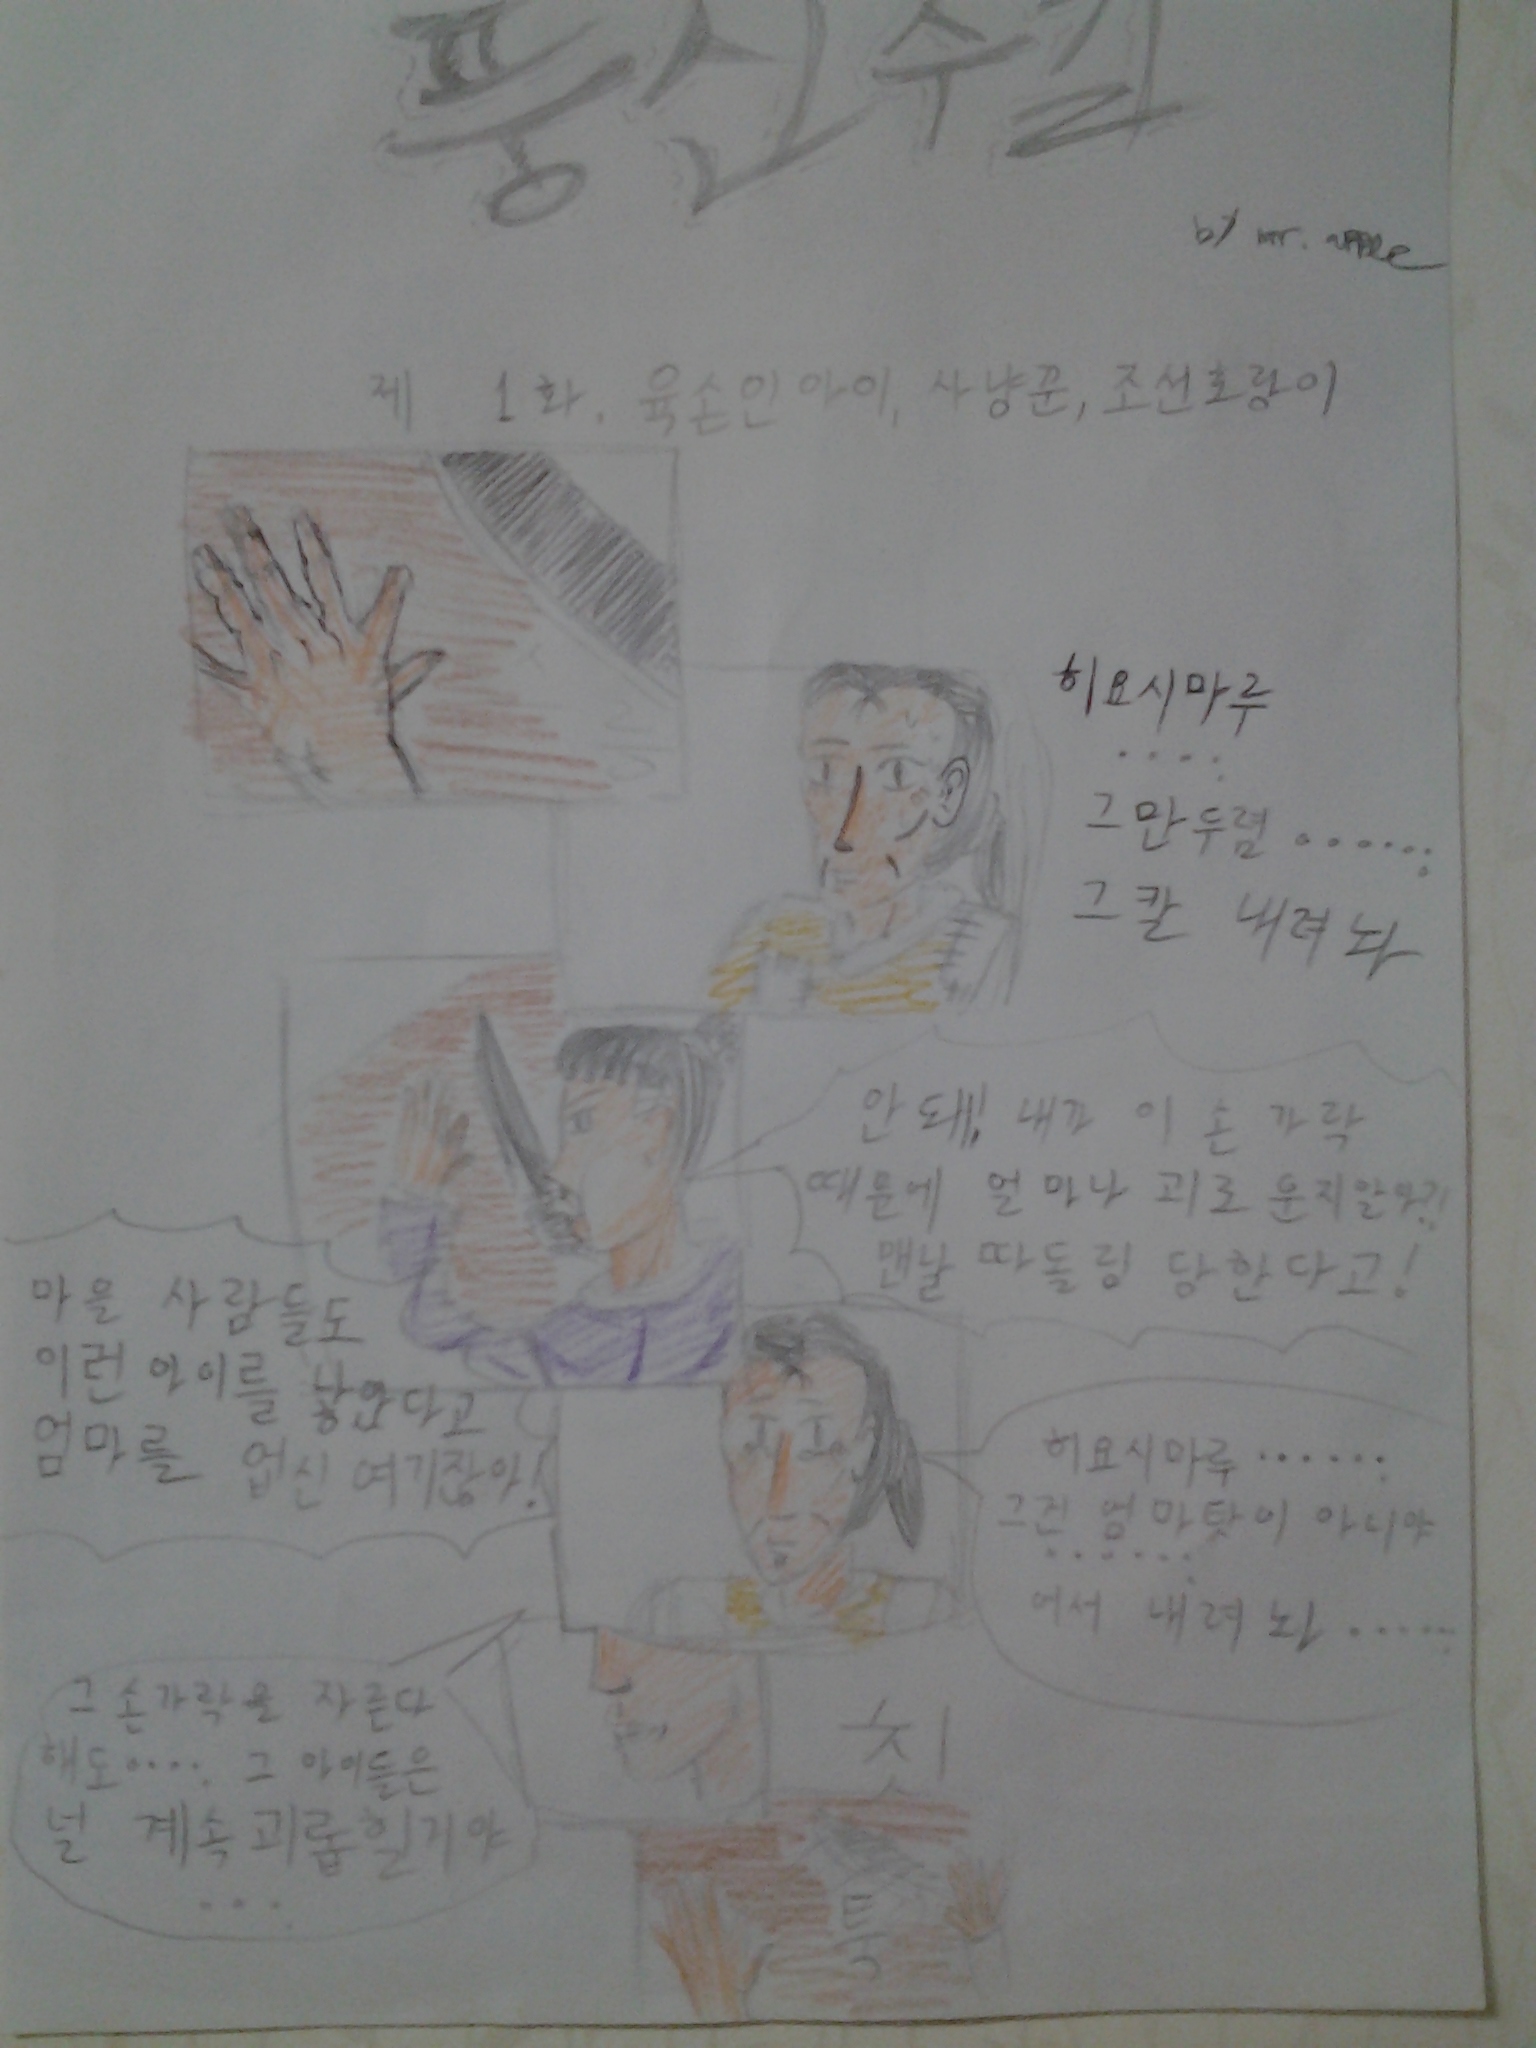 풍신수길
by mr. apple
제 1화. 육손인 아이, 사냥꾼, 조선호랑이
히요시마루
....
그만두렴......
그칼 내려놔
안돼! 내가 이 손가락
때문에 얼마나 괴로운지알아?!
맨날 따돌림 당한다고!
마을 사람들도
이런 아이를 낳았다고
엄마를 업신여기잖아!
히요시마루......
그건 엄마탓이 아니야
......
어서 내려놔.....
그 손가락을 자른다
해도.... 그 아이들은
널 계속 괴롭힐기야
...
칫
툭